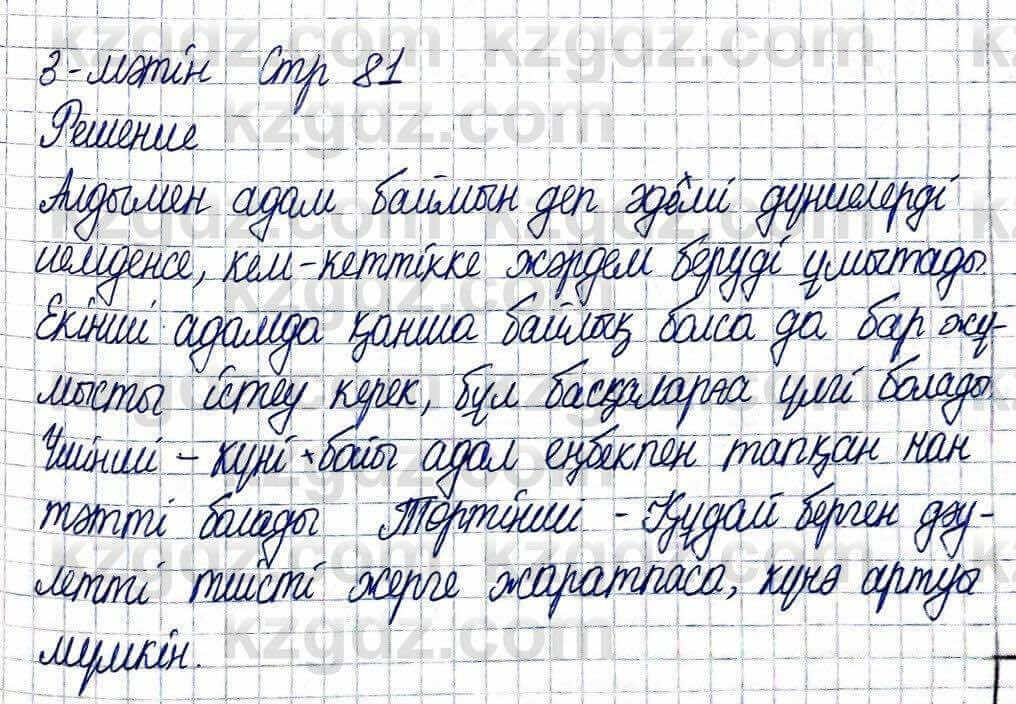 3-мәтін Стр 81
Решение
Алдымен адам баймын деп әдемі дүниелерді
иемденсе, кем-кеттікке жәрдем беруді ұмытады.
Екінші адамда қанша байлық болса да бар жұ-
мысты істеу керек, бұл басқаларға үлгі болады.
Үшінші - күні бойы адал еңбекпен тапқан нан
тәтті болады Төртінші - Құдай берген дәу-
летті тиісті жерге жаратпаса, күнә артуы
мүмкін.